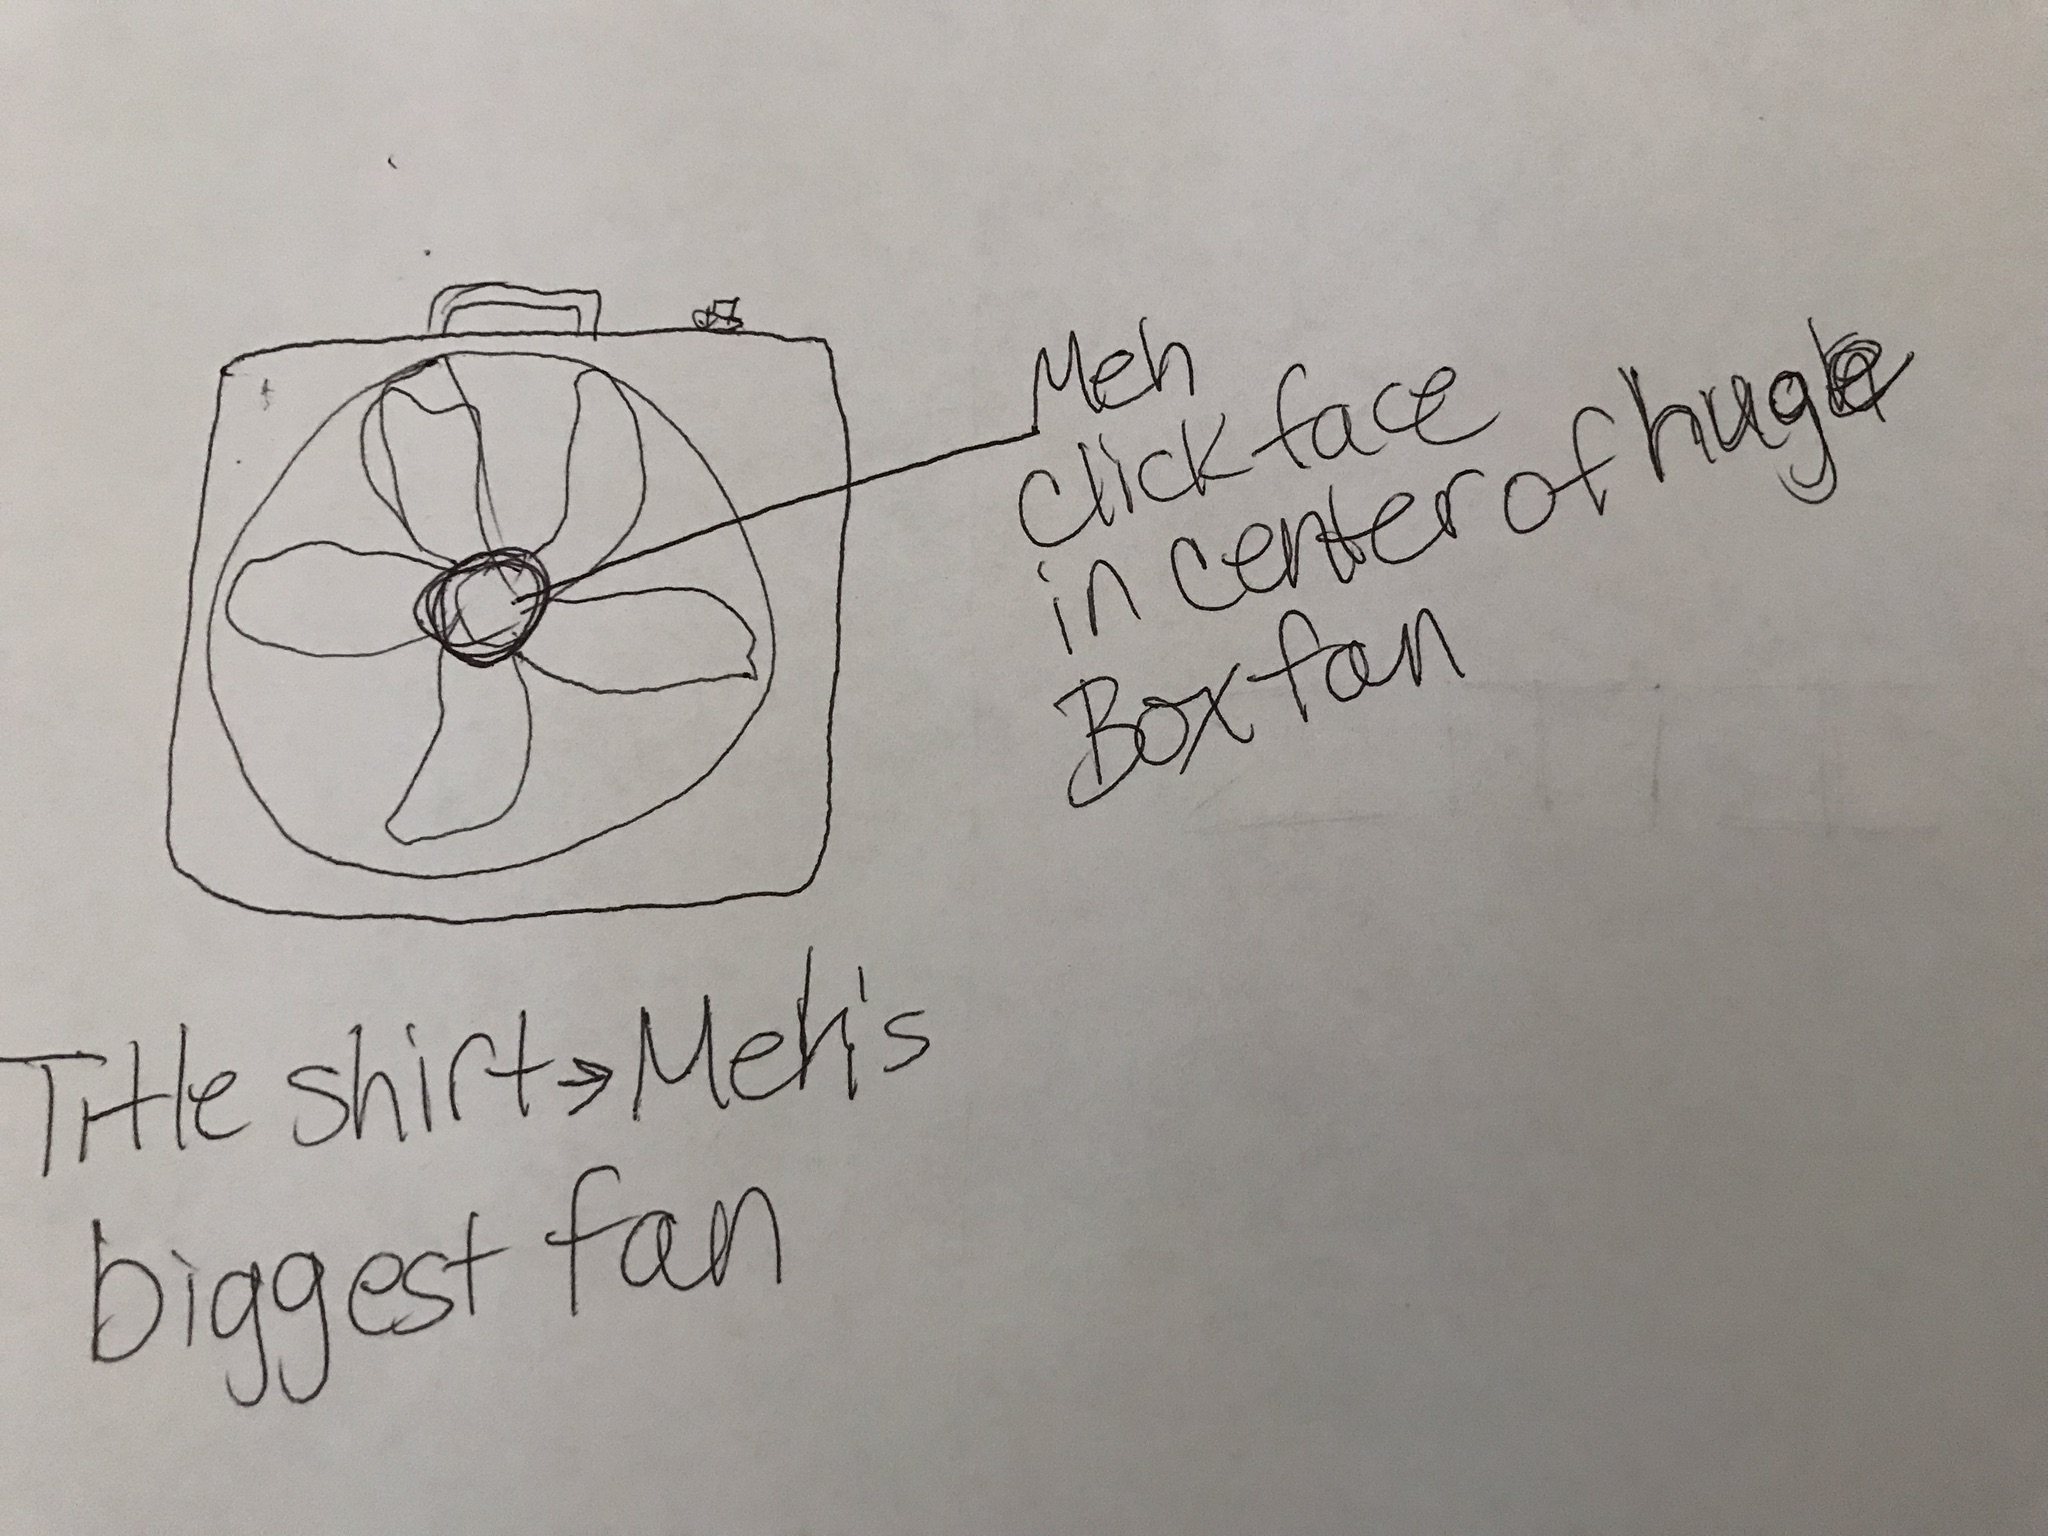 Meh
Click face
in center of huge
Box fan
Title shirt → Meh's
biggest fan